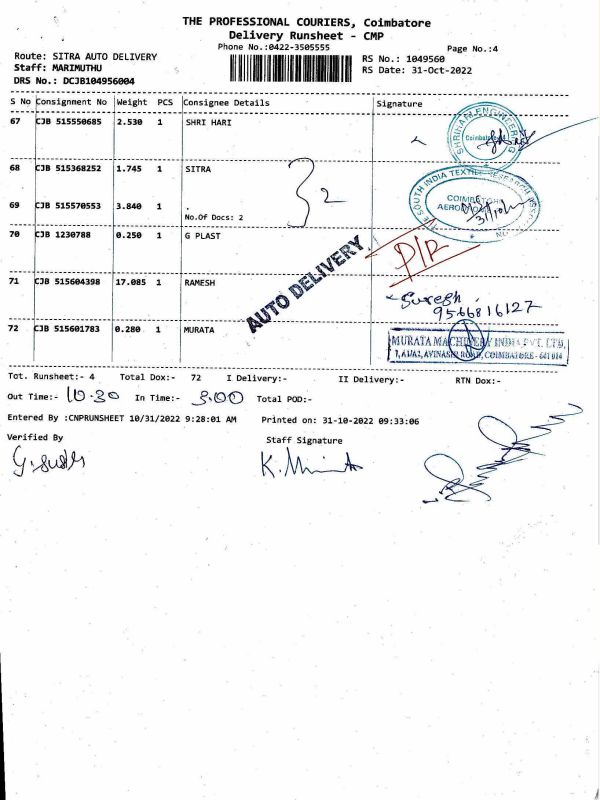 THE PROFESSIONAL COURIERS, Coimbatore
Delivery Runsheet - CMP
Phone No.:0422-3505555
Page No.:4
Route: SITRA AUTO DELIVERY
RS No.: 1049560
Staff: MARIMUTHU
RS Date: 31-Oct-2022
DRS No.: DCJB104956004
S No Consignment No Weight PCS Consignee Details Signature
67 CJB 515550685 2.530 1 SHRI HARI
SHRIHARI ENGINEERING
Coimbatore
68 CJB 515368252 1.745 1 SITRA
THE SOUTH INDIA TEXTILE RESEARCH ASSOCIATION
COIMBATORE
32
69 CJB 515570553 3.840 1 .
No.Of Docs: 2
70 CJB 1230788 0.250 1 G PLAST
D/R
AUTO DELIVERY.
71 CJB 515604398 17.085 1 RAMESH
Suresh
9566816127
72 CJB 515601783 0.280 1 MURATA
MURATA MACHINERY INDIA PVT. LTD.
AVINASHI ROAD, COIMBATORE - 641 014
Tot. Runsheet:- 4 Total Dox:- 72 I Delivery:- II Delivery:- RTN Dox:-
Out Time:- 10.30 In Time:- 3.00 Total POD:-
Entered By :CNPRUNSHEET 10/31/2022 9:28:01 AM Printed on: 31-10-2022 09:33:06
Verified By
Staff Signature